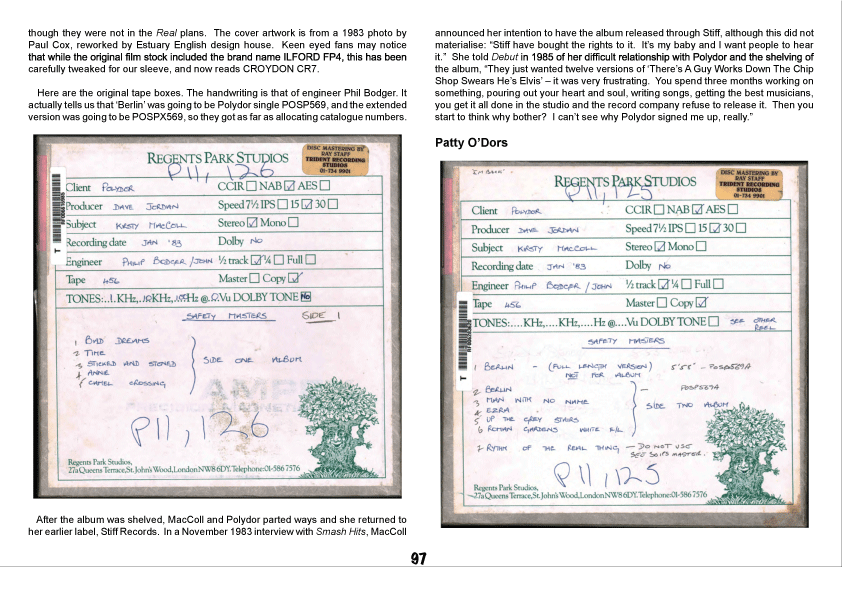 though they were not in the Real plans. The cover artwork is from a 1983 photo by
Paul Cox, reworked by Estuary English design house. Keen eyed fans may notice
that while the original film stock included the brand name ILFORD FP4, this has been
carefully tweaked for our sleeve, and now reads CROYDON CR7.
Here are the original tape boxes. The handwriting is that of engineer Phil Bodger. It
actually tells us that ‘Berlin’ was going to be Polydor single POSP569, and the extended
version was going to be POSPX569, so they got as far as allocating catalogue numbers.
DISC MASTERING BY
RAY STAFF
TRIDENT RECORDING
STUDIOS
01-734 9901
REGENTS PARK STUDIOS
P11, 126
Client POLYDOR CCIR NAB AES
Producer DAVE JORDAN Speed 7½ IPS 15 30
Subject KIRSTY MACCOLL Stereo Mono
Recording date JAN '83 Dolby NO
Engineer PHILIP BODGER / JOHN ½ track ¼ Full
Tape 456 Master Copy
TONES:..1.KHz,.10KHz,.100Hz @.0.Vu DOLBY TONE No
SAFETY MASTERS SIDE 1
1 BAD DREAMS
2 TIME
3 STICKED AND STONED
4 ANNIE
5 CAMEL CROSSING
SIDE ONE ALBUM
P11, 126
Regents Park Studios,
27a Queens Terrace, St. John's Wood, London NW8 6DY. Telephone: 01-586 7576
After the album was shelved, MacColl and Polydor parted ways and she returned to
her earlier label, Stiff Records. In a November 1983 interview with Smash Hits, MacColl
announced her intention to have the album released through Stiff, although this did not
materialise: “Stiff have bought the rights to it. It’s my baby and I want people to hear
it.” She told Debut in 1985 of her difficult relationship with Polydor and the shelving of
the album, “They just wanted twelve versions of ‘There’s A Guy Works Down The Chip
Shop Swears He’s Elvis’ – it was very frustrating. You spend three months working on
something, pouring out your heart and soul, writing songs, getting the best musicians,
you get it all done in the studio and the record company refuse to release it. Then you
start to think why bother? I can’t see why Polydor signed me up, really.”
Patty O’Dors
DISC MASTERING BY
RAY STAFF
TRIDENT RECORDING
STUDIOS
01-734 9901
REGENTS PARK STUDIOS
P11, 125
Client POLYDOR CCIR NAB AES
Producer DAVE JORDAN Speed 7½ IPS 15 30
Subject KIRSTY MACCOLL Stereo Mono
Recording date JAN '83 Dolby NO
Engineer PHILIP BODGER / JOHN ½ track ¼ Full
Tape 456 Master Copy
TONES:....KHz,....KHz,....Hz @....Vu DOLBY TONE SEE OTHER REEL
SAFETY MASTERS
1 BERLIN - (FULL LENGTH VERSION) 5'55" - POSPX569A
NOT FOR ALBUM
2 BERLIN — POSP569A
3 MAN WITH NO NAME
4 EZRA
5 UP THE GREY STAIRS
6 ROMAN GARDENS WHITE R/L
SIDE TWO ALBUM
7 RYTHM OF THE REAL THING — DO NOT USE
SEE 30 IPS MASTER.
P11, 125
Regents Park Studios,
27a Queens Terrace, St. John's Wood, London NW8 6DY. Telephone: 01-586 7576
97